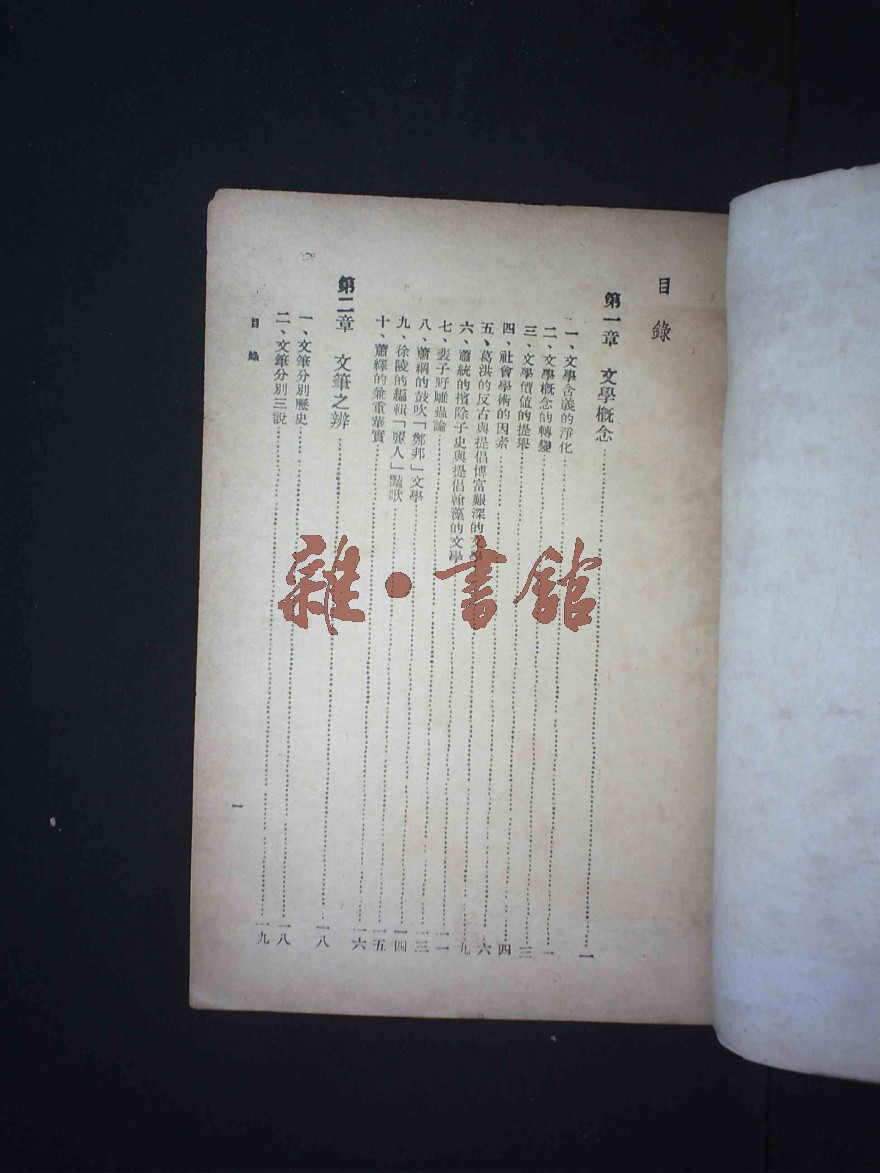 目錄
第一章 文學概念……一
一、文學含義的淨化……一
二、文學概念的轉變……三
三、文學價值的提舉……四
四、社會學術的因素……六
五、葛洪的反古與提倡博富艱深的文學……九
六、蕭統的擯除子史與提倡翰藻的文學……一一
七、裴子野雕蟲論……一三
八、蕭綱的鼓吹「鄭邦」文學……一四
九、徐陵的編輯「麗人」豔歌……一五
十、蕭繹的兼重華實……一六
第二章 文筆之辨……一八
一、文筆分別歷史……一八
二、文筆分別三說……一九
目錄
一
雜·書館